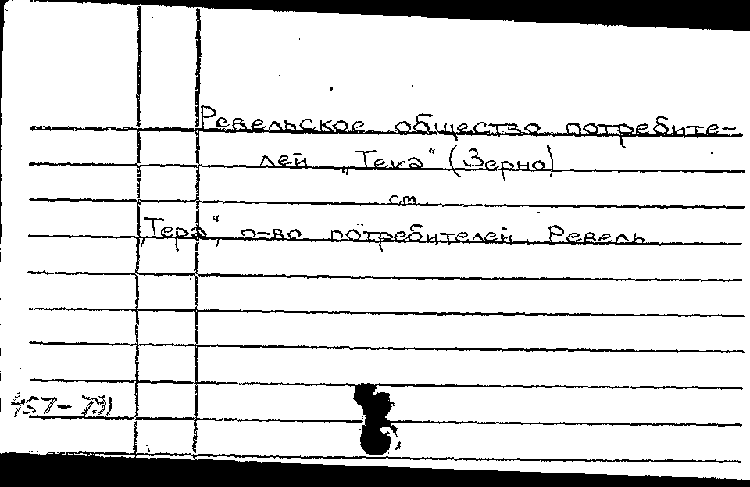 Ревельское общество потребите-
лей „Тека“ (Зерно)
см
„Тера“, о-во потребителей, Ревель
457-791